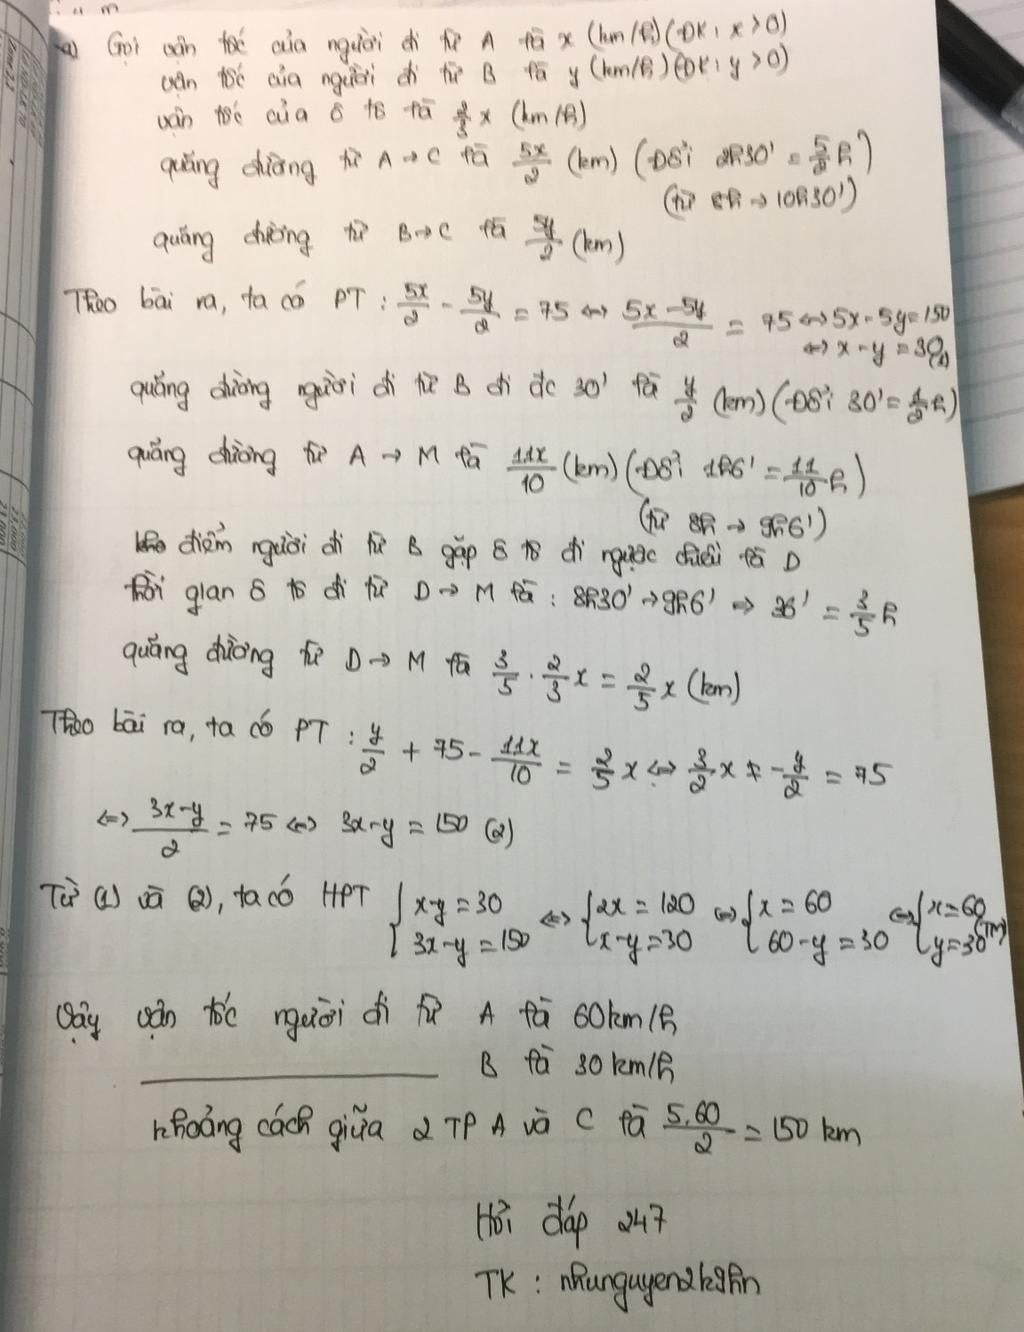 a) Gọi vận tốc của người đi từ A là x (km/h) (ĐK: x > 0)
vận tốc của người đi từ B là y (km/h) (ĐK: y > 0)
vận tốc của ô tô là 2/3 x (km/h)
quãng đường từ A → C là 5x/2 (km) (Đổi 2h30' = 5/2 h)
(từ 8h → 10h30')
quãng đường từ B → C là 5y/2 (km)
Theo bài ra, ta có PT : 5x/2 - 5y/2 = 75 ⇔ (5x - 5y)/2 = 75 ⇔ 5x - 5y = 150
⇔ x - y = 30 (1)
quãng đường người đi từ B đi đc 30' là y/2 (km) (Đổi 30' = 1/2 h)
quãng đường từ A → M là 11x/10 (km) (Đổi 1h6' = 11/10 h)
(từ 8h → 9h6')
điểm người đi từ B gặp ô tô đi ngược chiều là D
thời gian ô tô đi từ D → M là : 8h30' → 9h6' ⇒ 36' = 3/5 h
quãng đường từ D → M là 3/5 . 2/3 x = 2/5 x (km)
Theo bài ra, ta có PT : y/2 + 75 - 11x/10 = 2/5 x ⇔ 3/2 x - y/2 = 75
⇔ (3x - y)/2 = 75 ⇔ 3x - y = 150 (2)
Từ (1) và (2), ta có HPT { x - y = 30 ; 3x - y = 150 ⇔ { 2x = 120 ; x - y = 30 ⇔ { x = 60 ; 60 - y = 30 ⇔ { x = 60 ; y = 30 (TM)
Vậy vận tốc người đi từ A là 60 km/h
B là 30 km/h
khoảng cách giữa 2 TP A và C là 5.60/2 = 150 km
Hỏi đáp 247
TK : nhunguyen2k9hn